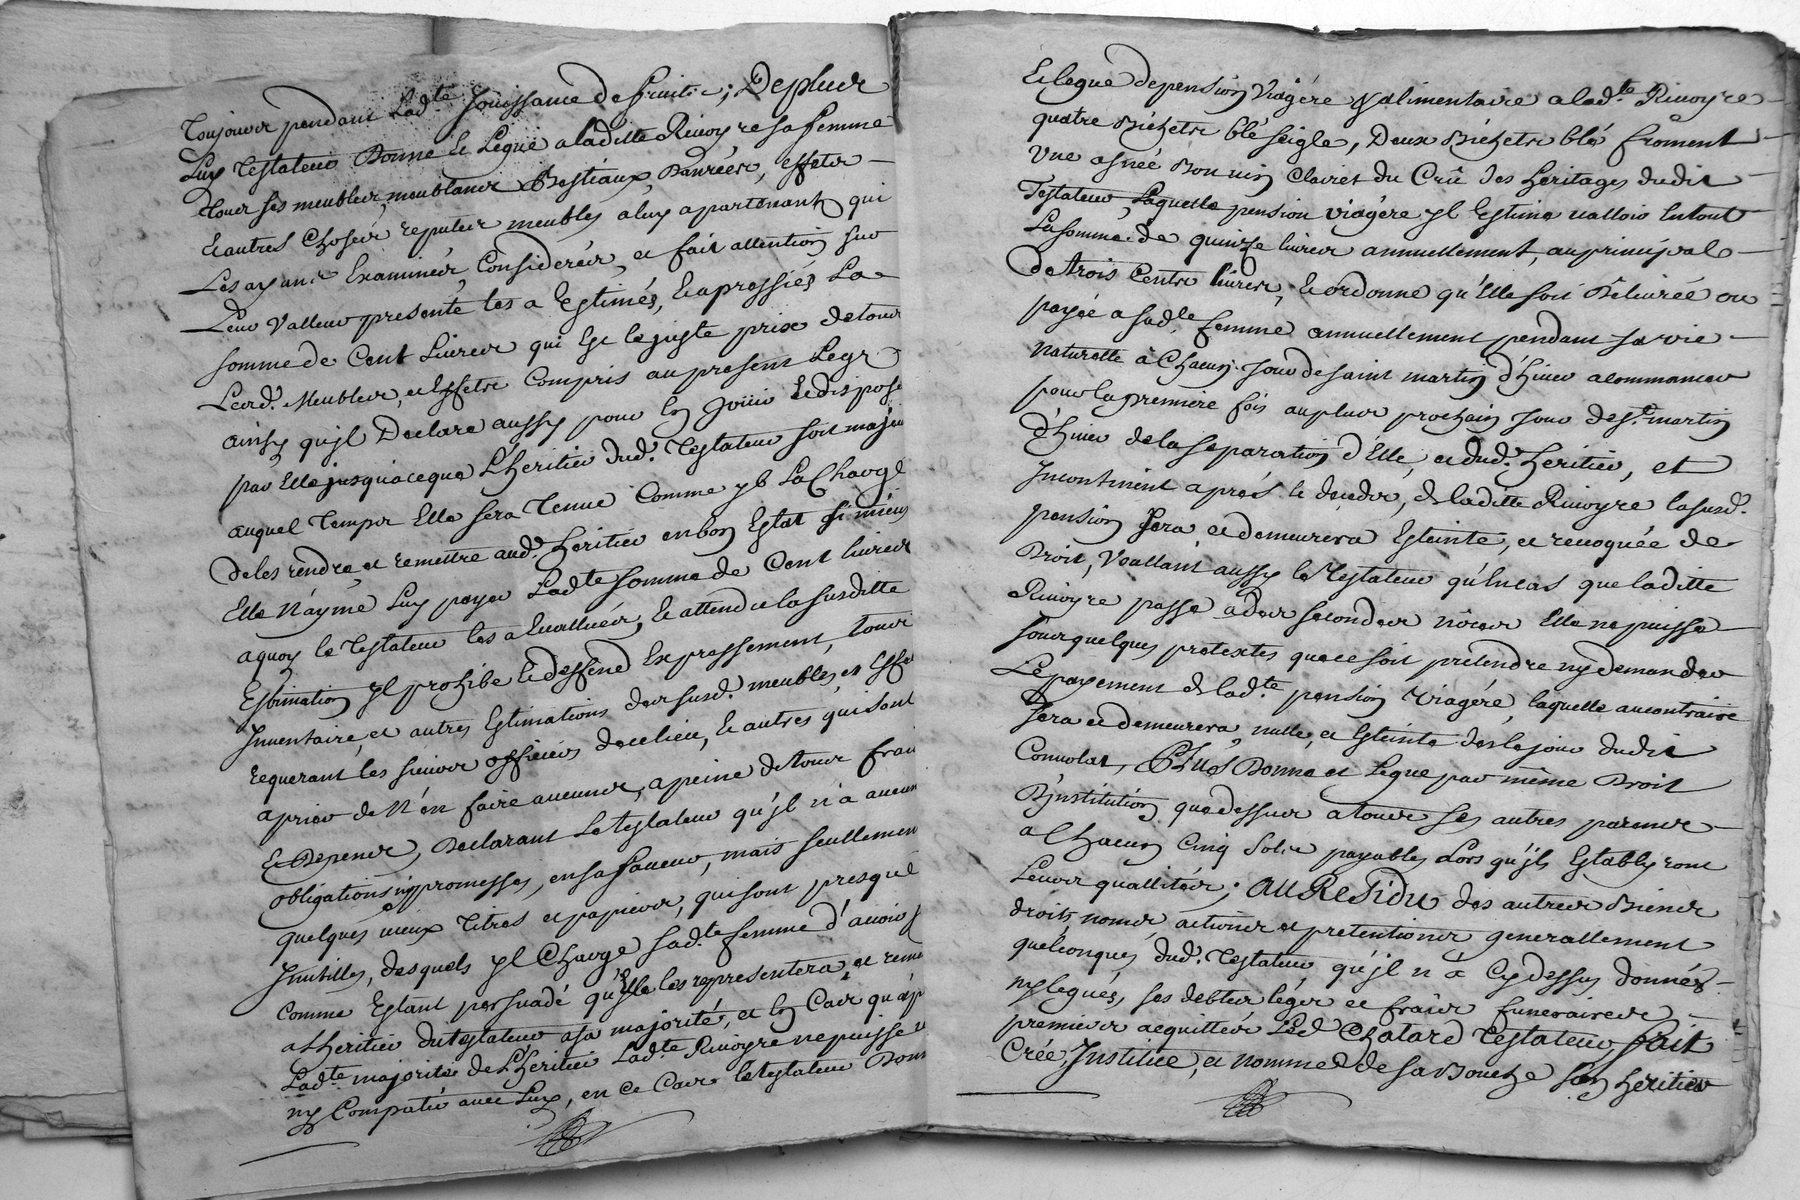 Toujours pendant Lad.te Jouissance de fruits; De plus
Luy Testateur Donne et Legue a laditte Rivoyre sa femme
Tous ses meubles, meublants Bestiaux, Danrées, effets
et autres Choses reputer meubles a luy apartenants qui
Les ayant Examinér, Considerér, et fait attention sur
Leur Valleur presente les a Estimés, et apressiés La
somme de Cent Livres qui Est le juste prix de tous
Lesd. Meubles, et Effets Compris au present Legs
ainsy qu'yl Declare aussy pour En Jouir et disposé
par Elle jusqu'a ce que L'heritier dud. Testateur soit majeur
auquel Temps Elle sera Tenue Comme yl La Charge
de les rendre, et remettre aud. heritier en bon Estat si mieux
Elle N'ayme Luy payer Lad.te somme de Cent livres
a quoy le Testateur les a Evalluér, et attendu la susditte
Estimation yl prohibe et deffend Expressement, tous
Inventaire, et autres Estimations des susd. meubles, et Effets
requerant les sieurs officiers de ce lieu, et autres qui sont
a prier de N'en faire aucuner, a peine de tous frais
et Depens, Declarant Le testateur qu'yl n'a aucun
obligations ny promesses, en sa faveur, mais seullement
quelques vieux Titres et papiers, qui sont presque
Inutilles, desquels yl Charge sad.te femme d'avoir
Comme Estant persuadé qu'Elle les representera, et reme
a L'heritier du testateur a sa majorité, et En Cas qu'ap
Lad.te majorité de L'heritier Lad.te Rivoyre ne puisse
ny Compatir avec Luy, en ce Cas le testateur Donne
Et legue de pension Viagére & alimentaire a lad.te Rivoyre
quatre Bichets blé seigle, Deux Bichets blé froment
Une asnée Bon vin Clairet du Crû des heritages dudit
Testateur, Laquelle pension viagére yl Estime valloir En tout
La somme de quinze livres annuellement, au principal
de trois Cents livres, et ordonne qu'Elle soit Délivrée ou
payée a sad.te femme annuellement pendant sa vie
naturelle à Chacun jour de saint martin d'hiver a commancer
pour la premiere fois au plus prochain jour de s.t martin
d'hiver de la separation d'Elle, et dud. heritier, et
Incontinent aprés le decedr, de laditte Rivoyre la susd.
pension sera et demeurera Esteinte, et revoquée de
Droit, Voullant aussy le Testateur qu'En cas que laditte
Rivoyre passe a des secondes nôces Elle ne puisse
sour quelques pretextes que ce soit pretendre ny demander
Le payement de lad.te pension Viagére, laquelle au contraire
sera et demeurera, nulle, et Esteinte des le jour dudit
Convolat, Plus Donne et Legue par même Droit
D'institution que dessus a tous ses autres parens
a Chacun Cinq Solz payables Lors qu'ils Establiront
Leurs quallitér; AU ReSiDu des autres Biens
droits, noms, actions et pretentions generallement
quelconques dud. Testateur, qu'yl n'a Cy dessus donnés
ny legués, ses debtes, léger et frair funeraires
premier acquittér Led. Chatard Testateur, fait
Créé, Institue, et nomme de sa Bouche son heritier